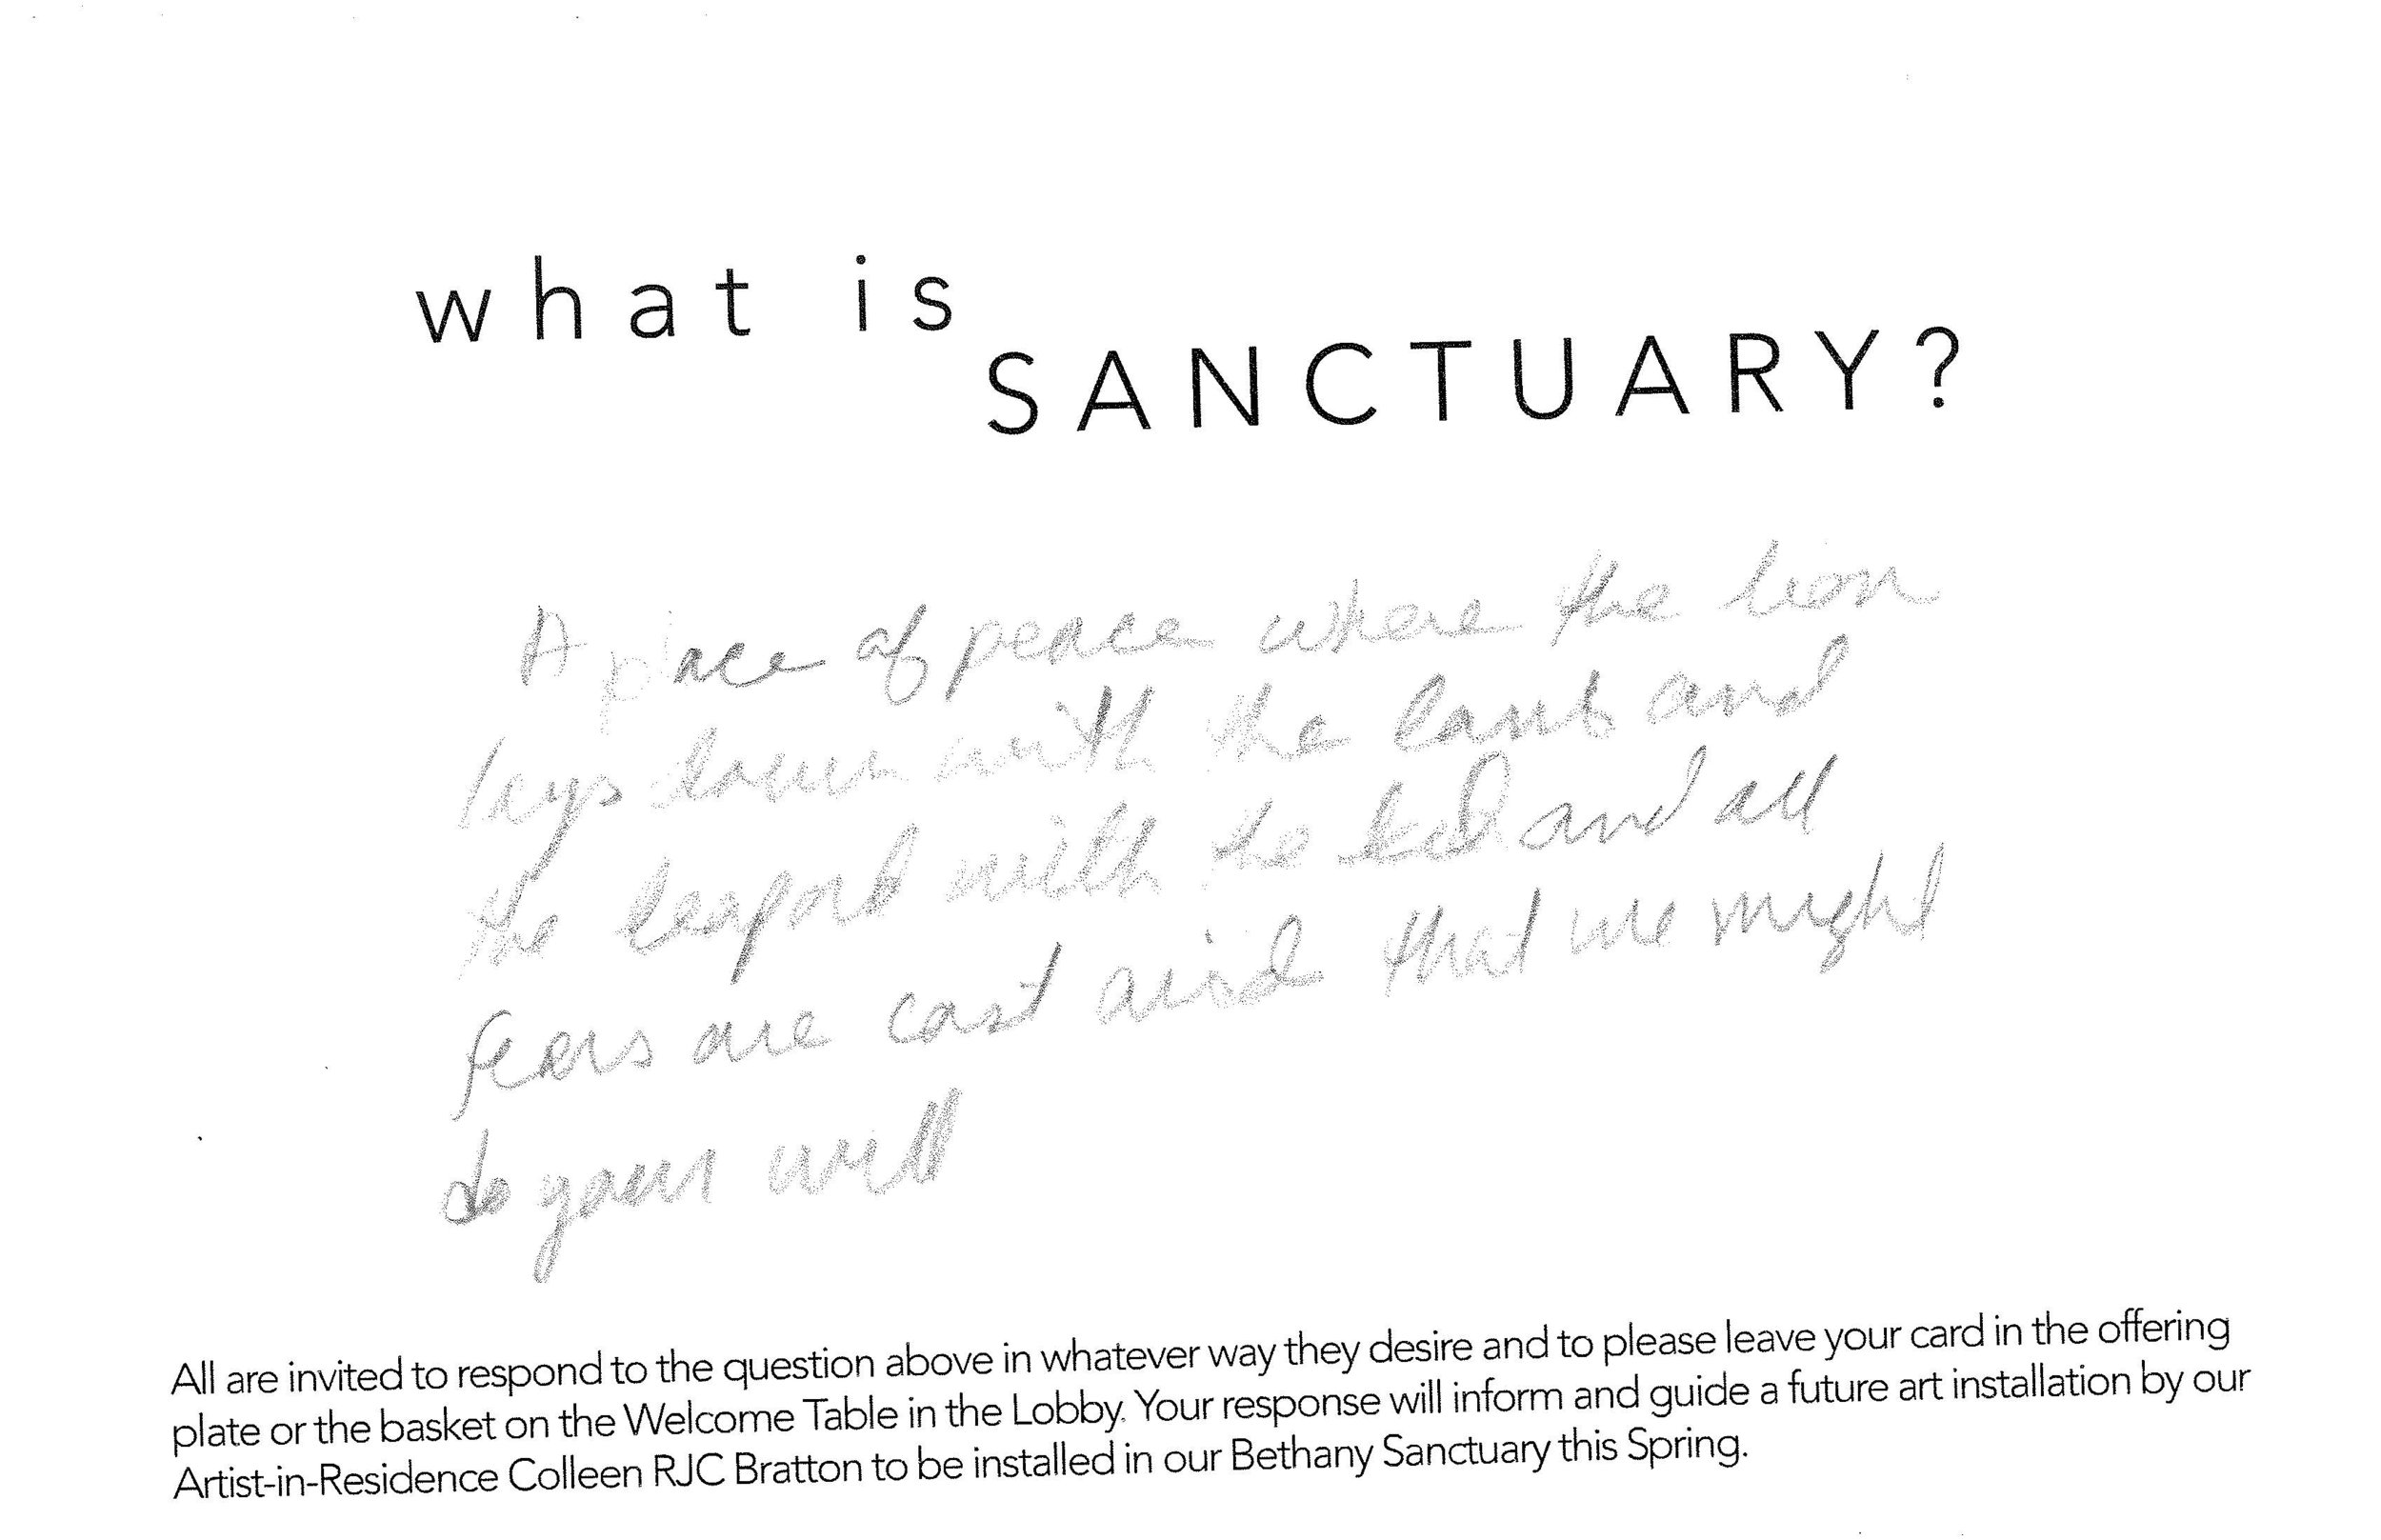 what is
SANCTUARY?
A place of peace where the lion
lays down with the lamb and
the leapord with the kid and all
fears are cast aside that we might
do your will
All are invited to respond to the question above in whatever way they desire and to please leave your card in the offering
plate or the basket on the Welcome Table in the Lobby. Your response will inform and guide a future art installation by our
Artist-in-Residence Colleen RJC Bratton to be installed in our Bethany Sanctuary this Spring.